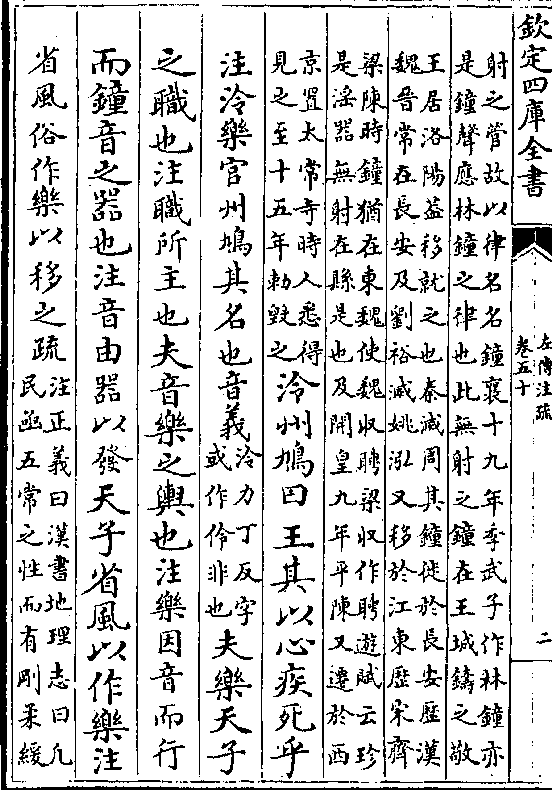 欽定四庫全書
左傳注疏
卷五十
二
射之管故以律名名鐘襄十九年季武子作林鐘亦
是鐘聲應林鐘之律也此無射之鐘在王城鑄之敬
王居洛陽蓋移就之也秦滅周其鐘徙於長安歷漢
魏晉常在長安及劉裕滅姚泓又移於江東歷宋齊
梁陳時鐘猶在東魏使魏收聘梁收作聘遊賦云珍
是淫器無射在縣是也及開皇九年平陳又遷於西
京置太常寺時人悉得
見之至十五年勅毀之
泠州鳩曰王其以心疾死乎
注泠樂官州鳩其名也音義
泠力丁反字
或作伶非也
夫樂天子
之職也注職所主也夫音樂之輿也注樂因音而行
而鐘音之器也注音由器以發天子省風以作樂注
省風俗作樂以移之疏
注正義曰漢書地理志曰凡
民函五常之性而有剛柔緩